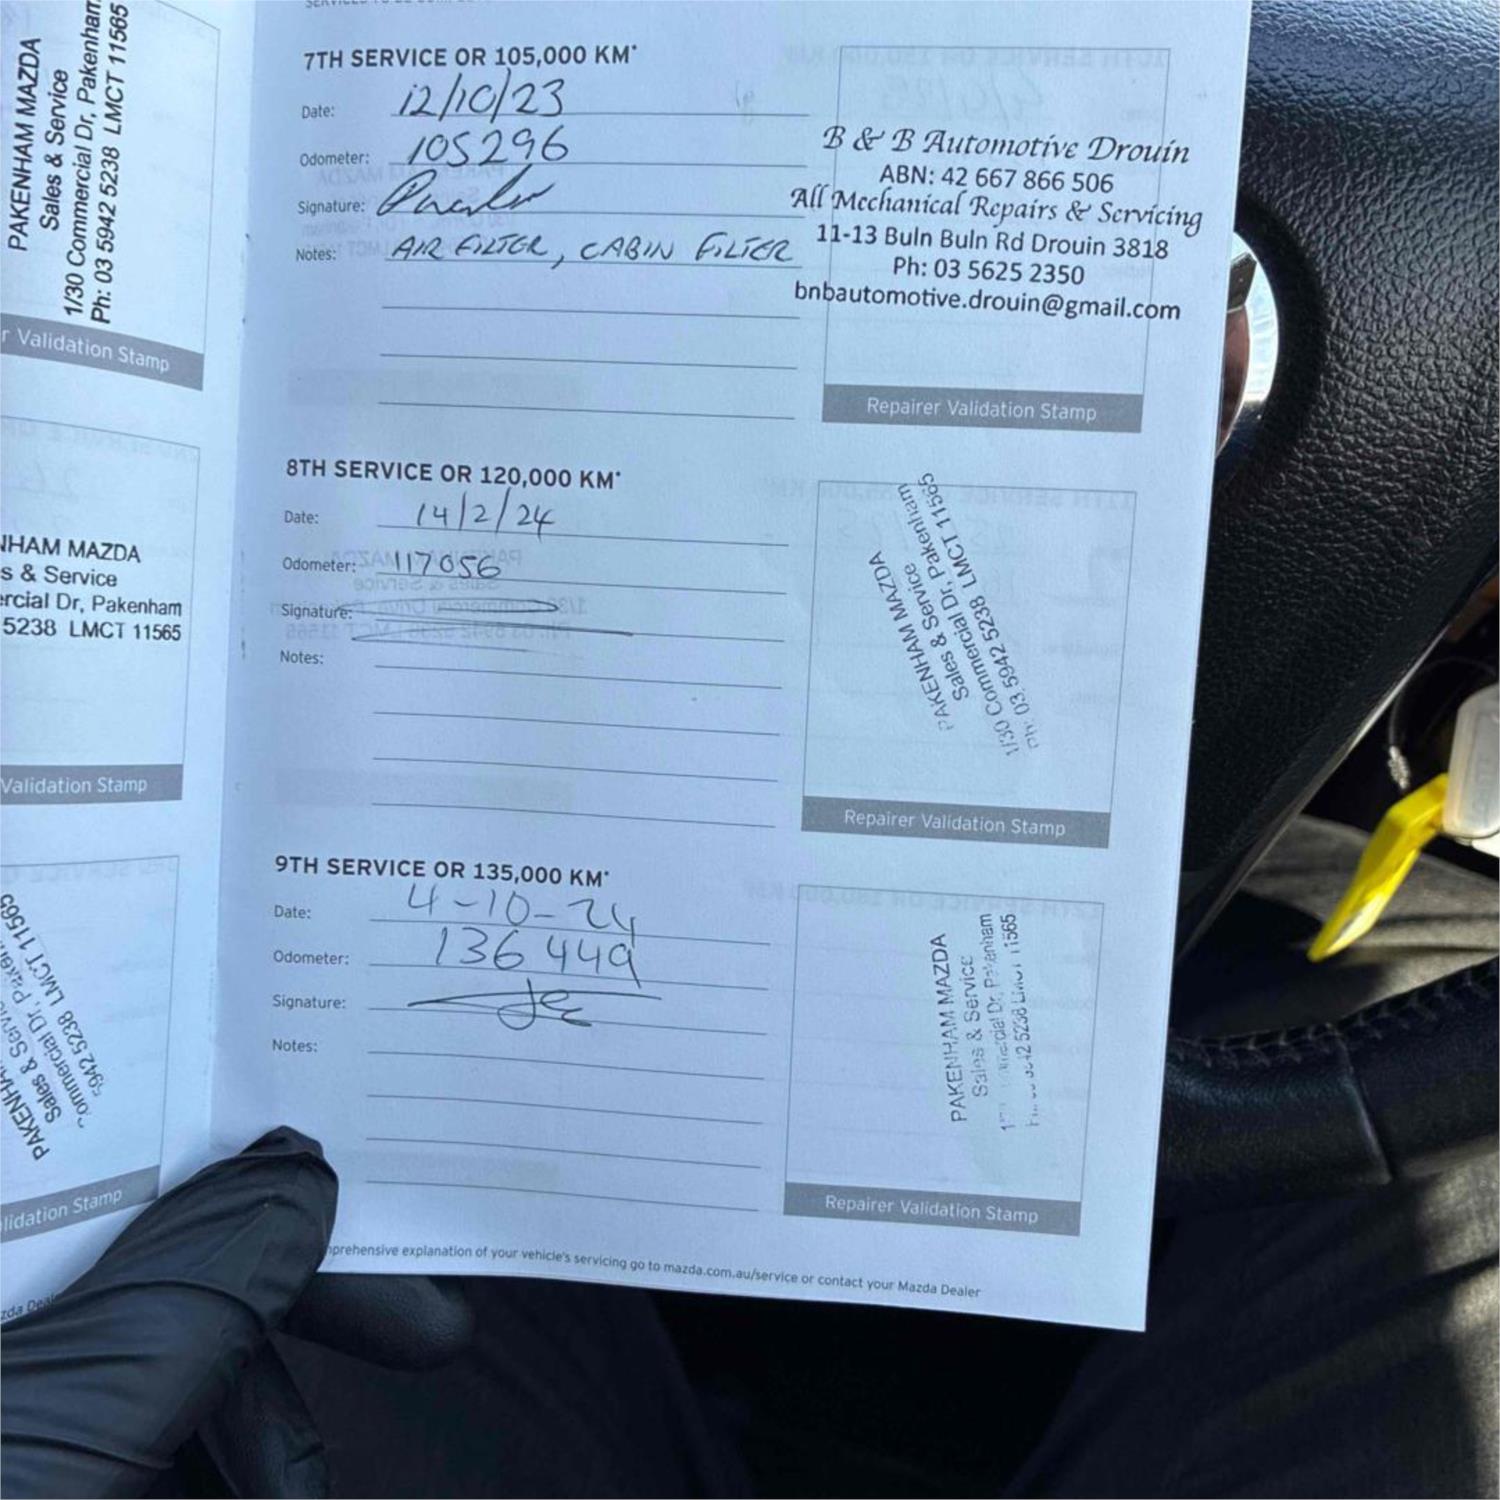 PAKENHAM MAZDA
Sales & Service
1/30 Commercial Dr, Pakenham
Ph: 03 5942 5238 LMCT 11565
r Validation Stamp
NHAM MAZDA
s & Service
ercial Dr, Pakenham
5238 LMCT 11565
Validation Stamp
PAKENHA
Sales & Servic
ommercial Dr, Paken
5942 5238 LMCT 11565
lidation Stamp
zda Deal
7TH SERVICE OR 105,000 KM*
Date: 12/10/23
Odometer: 105296
Signature:
Notes: AIR FILTER, CABIN FILTER
B & B Automotive Drouin
ABN: 42 667 866 506
All Mechanical Repairs & Servicing
11-13 Buln Buln Rd Drouin 3818
Ph: 03 5625 2350
bnbautomotive.drouin@gmail.com
Repairer Validation Stamp
8TH SERVICE OR 120,000 KM*
Date: 14/2/24
Odometer: 117056
Signature:
Notes:
PAKENHAM MAZDA
Sales & Service
1/30 Commercial Dr, Pakenham
Ph: 03 5942 5238 LMCT 11565
Repairer Validation Stamp
9TH SERVICE OR 135,000 KM*
Date: 4-10-24
Odometer: 136449
Signature:
Notes:
PAKENHAM MAZDA
Sales & Service
Dr, Pakenham
5238 LMCT 11565
Repairer Validation Stamp
mprehensive explanation of your vehicle's servicing go to mazda.com.au/service or contact your Mazda Dealer